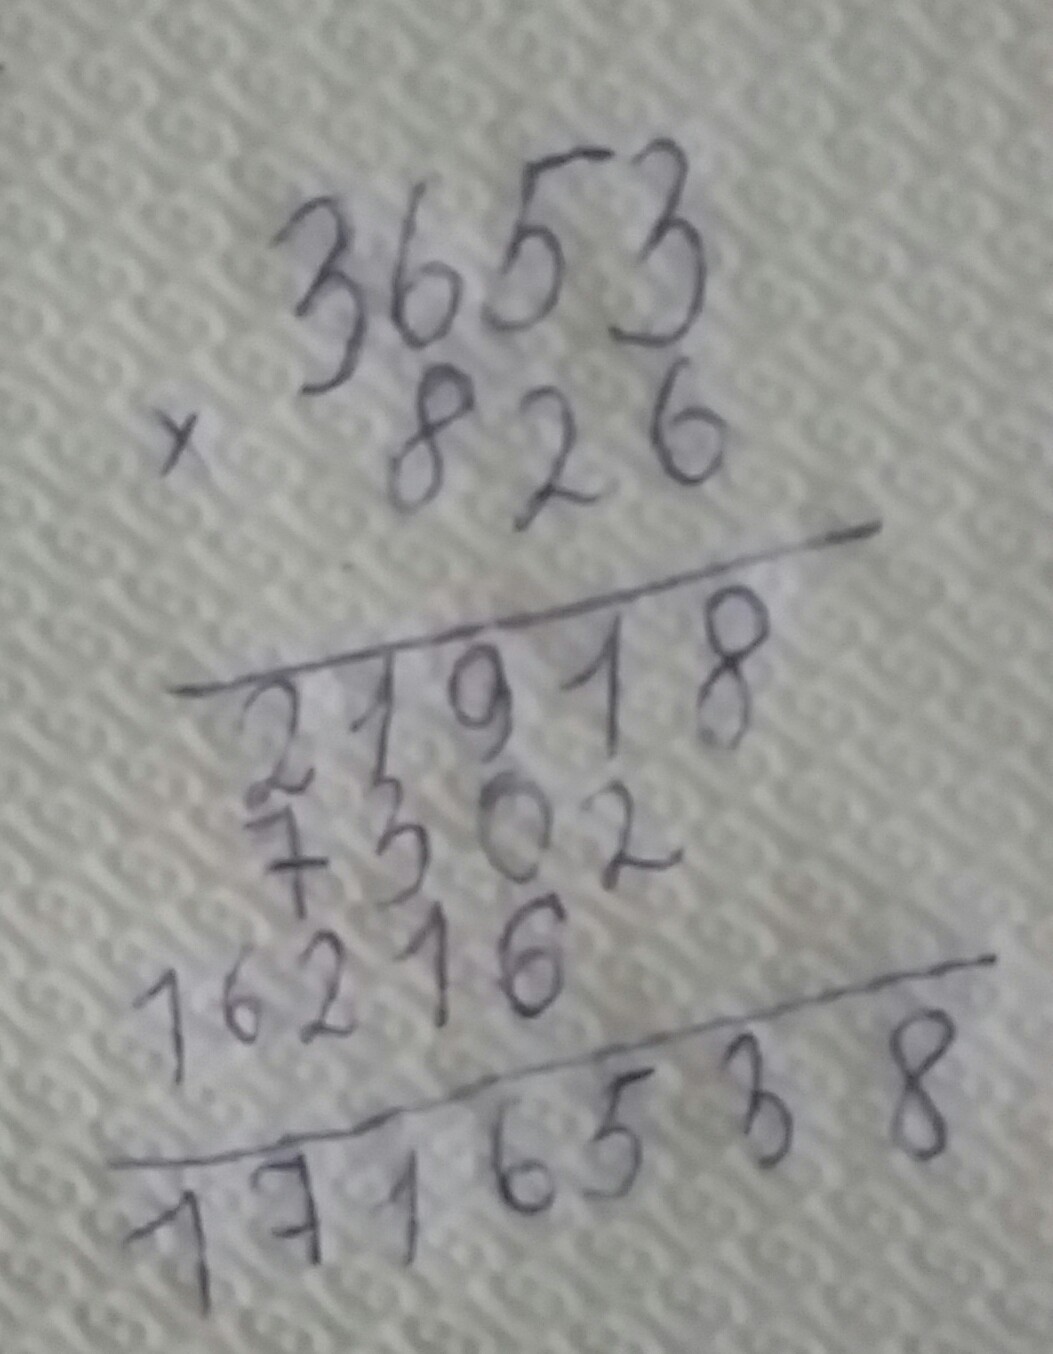 3653
x 826
21918
7302
16216
1716538